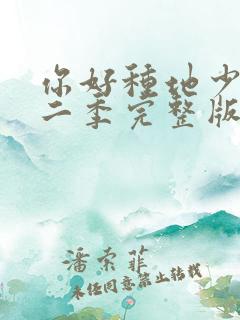 你好種地少
二季完整版
潘索菲
未经同意禁止转载